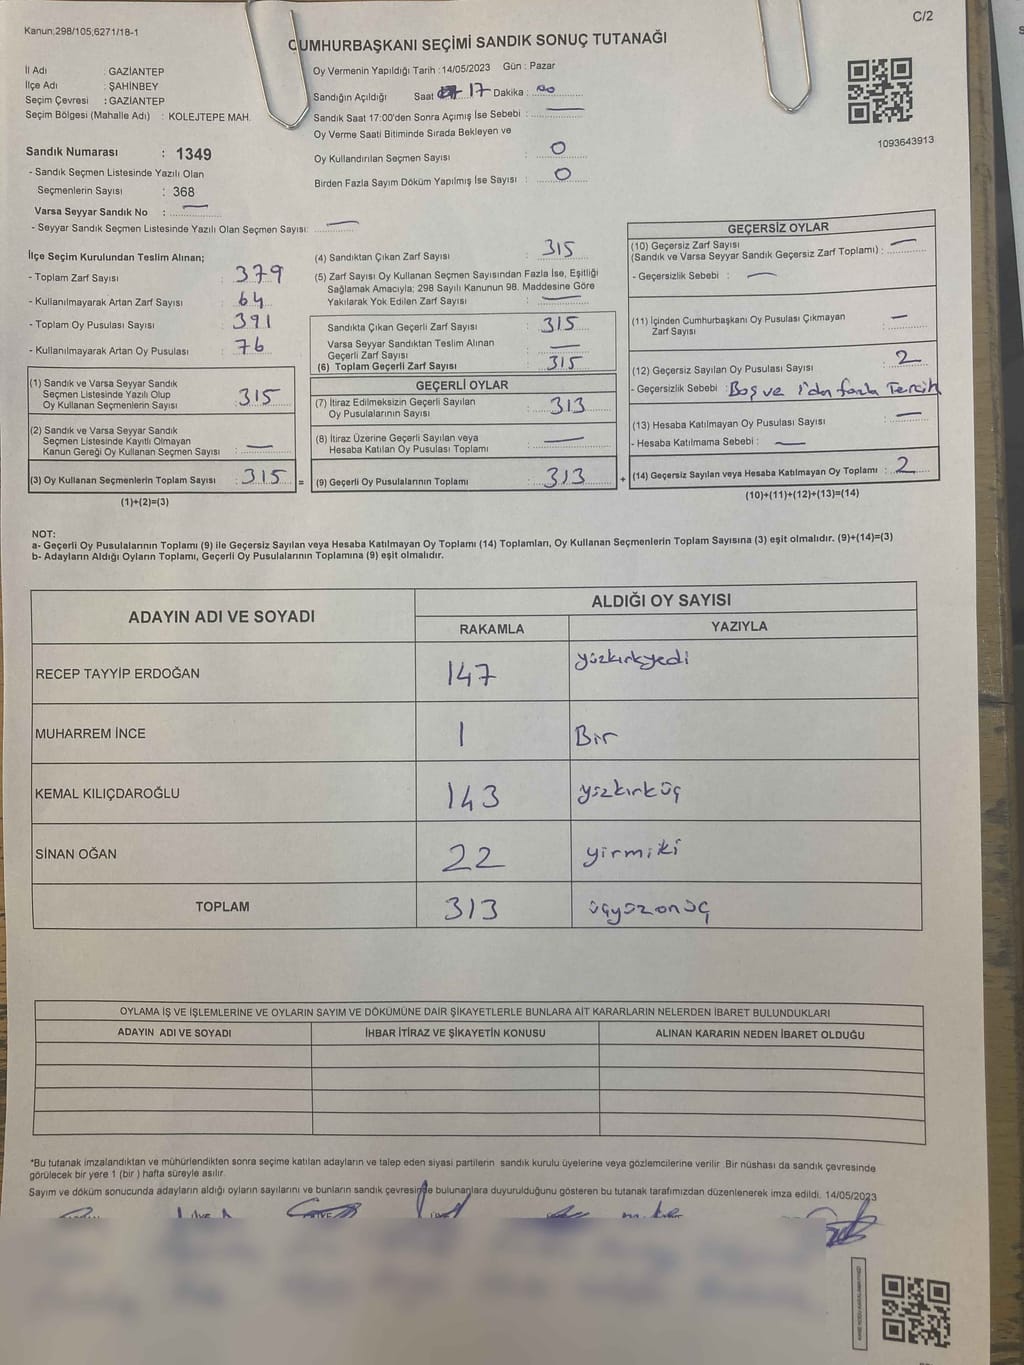 C/2
Kanun;298/105;6271/18-1
CUMHURBAŞKANI SEÇİMİ SANDIK SONUÇ TUTANAĞI
İl Adı : GAZİANTEP
İlçe Adı : ŞAHİNBEY
Seçim Çevresi : GAZİANTEP
Seçim Bölgesi (Mahalle Adı) : KOLEJTEPE MAH.
Sandık Numarası : 1349
- Sandık Seçmen Listesinde Yazılı Olan
Seçmenlerin Sayısı : 368
Varsa Seyyar Sandık No : —
- Seyyar Sandık Seçmen Listesinde Yazılı Olan Seçmen Sayısı: —
Oy Vermenin Yapıldığı Tarih : 14/05/2023 Gün : Pazar
Sandığın Açıldığı Saat 17 Dakika : 00
Sandık Saat 17:00'den Sonra Açımış İse Sebebi : —
Oy Verme Saati Bitiminde Sırada Bekleyen ve
Oy Kullandırılan Seçmen Sayısı : 0
Birden Fazla Sayım Döküm Yapılmış İse Sayısı : 0
1093643913
İlçe Seçim Kurulundan Teslim Alınan;
- Toplam Zarf Sayısı : 379
- Kullanılmayarak Artan Zarf Sayısı : 64
- Toplam Oy Pusulası Sayısı : 391
- Kullanılmayarak Artan Oy Pusulası : 76
(1) Sandık ve Varsa Seyyar Sandık
Seçmen Listesinde Yazılı Olup
Oy Kullanan Seçmenlerin Sayısı : 315
(2) Sandık ve Varsa Seyyar Sandık
Seçmen Listesinde Kayıtlı Olmayan
Kanun Gereği Oy Kullanan Seçmen Sayısı : —
(3) Oy Kullanan Seçmenlerin Toplam Sayısı : 315 =
(1)+(2)=(3)
(4) Sandıktan Çıkan Zarf Sayısı : 315
(5) Zarf Sayısı Oy Kullanan Seçmen Sayısından Fazla İse, Eşitliği
Sağlamak Amacıyla; 298 Sayılı Kanunun 98. Maddesine Göre
Yakılarak Yok Edilen Zarf Sayısı : —
Sandıkta Çıkan Geçerli Zarf Sayısı : 315
Varsa Seyyar Sandıktan Teslim Alınan
Geçerli Zarf Sayısı : —
(6) Toplam Geçerli Zarf Sayısı : 315
GEÇERLİ OYLAR
(7) İtiraz Edilmeksizin Geçerli Sayılan
Oy Pusulalarının Sayısı : 313
(8) İtiraz Üzerine Geçerli Sayılan veya
Hesaba Katılan Oy Pusulası Toplamı : —
(9) Geçerli Oy Pusulalarının Toplamı : 313 +
GEÇERSİZ OYLAR
(10) Geçersiz Zarf Sayısı
(Sandık ve Varsa Seyyar Sandık Geçersiz Zarf Toplamı) : —
- Geçersizlik Sebebi : —
(11) İçinden Cumhurbaşkanı Oy Pusulası Çıkmayan
Zarf Sayısı : —
(12) Geçersiz Sayılan Oy Pusulası Sayısı : 2
- Geçersizlik Sebebi : Boş ve 1'den fazla Tercih
(13) Hesaba Katılmayan Oy Pusulası Sayısı : —
- Hesaba Katılmama Sebebi : —
(14) Geçersiz Sayılan veya Hesaba Katılmayan Oy Toplamı : 2
(10)+(11)+(12)+(13)=(14)
NOT:
a- Geçerli Oy Pusulalarının Toplamı (9) ile Geçersiz Sayılan veya Hesaba Katılmayan Oy Toplamı (14) Toplamları, Oy Kullanan Seçmenlerin Toplam Sayısına (3) eşit olmalıdır. (9)+(14)=(3)
b- Adayların Aldığı Oyların Toplamı, Geçerli Oy Pusulalarının Toplamına (9) eşit olmalıdır.
ADAYIN ADI VE SOYADI ALDIĞI OY SAYISI
RAKAMLA YAZIYLA
RECEP TAYYİP ERDOĞAN 147 yüzkırkyedi
MUHARREM İNCE 1 Bir
KEMAL KILIÇDAROĞLU 143 yüzkırküç
SİNAN OĞAN 22 yirmiki
TOPLAM 313 üçyüzonüç
OYLAMA İŞ VE İŞLEMLERİNE VE OYLARIN SAYIM VE DÖKÜMÜNE DAİR ŞİKAYETLERLE BUNLARA AİT KARARLARIN NELERDEN İBARET BULUNDUKLARI
ADAYIN ADI VE SOYADI İHBAR İTİRAZ VE ŞİKAYETİN KONUSU ALINAN KARARIN NEDEN İBARET OLDUĞU
*Bu tutanak imzalandıktan ve mühürlendikten sonra seçime katılan adayların ve talep eden siyasi partilerin sandık kurulu üyelerine veya gözlemcilerine verilir. Bir nüshası da sandık çevresinde
görülecek bir yere 1 (bir ) hafta süreyle asılır.
Sayım ve döküm sonucunda adayların aldığı oyların sayılarını ve bunların sandık çevresinde bulunanlara duyurulduğunu gösteren bu tutanak tarafımızdan düzenlenerek imza edildi. 14/05/2023